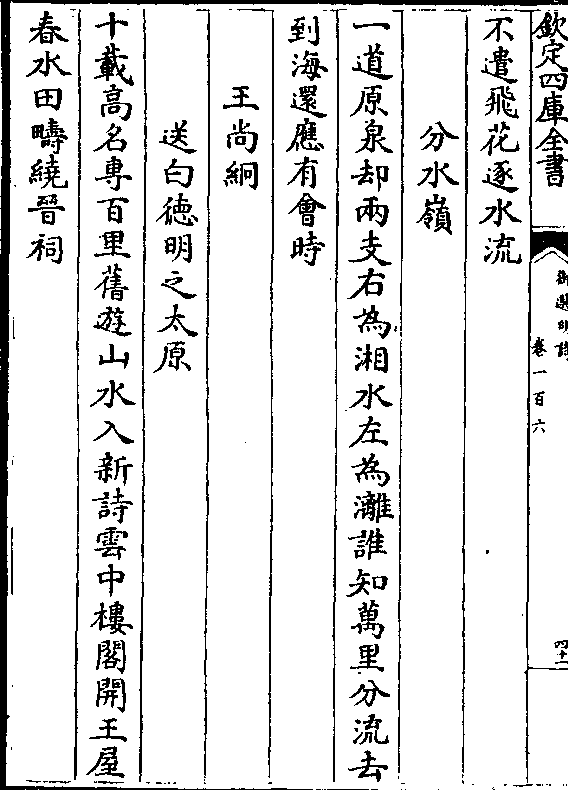 欽定四庫全書
御選明詩
卷一百六
四十一
不遣飛花逐水流
分水嶺
一道原泉却兩支右為湘水左為灕誰知萬里分流去
到海還應有會時
王尚絅
送白德明之太原
十載高名專百里舊遊山水入新詩雲中樓閣開王屋
春水田疇繞晉祠